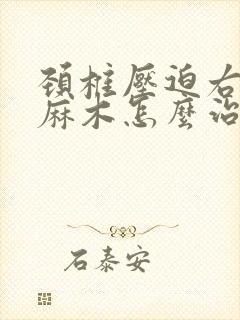 頸椎壓迫右
麻木怎麼治
石泰安